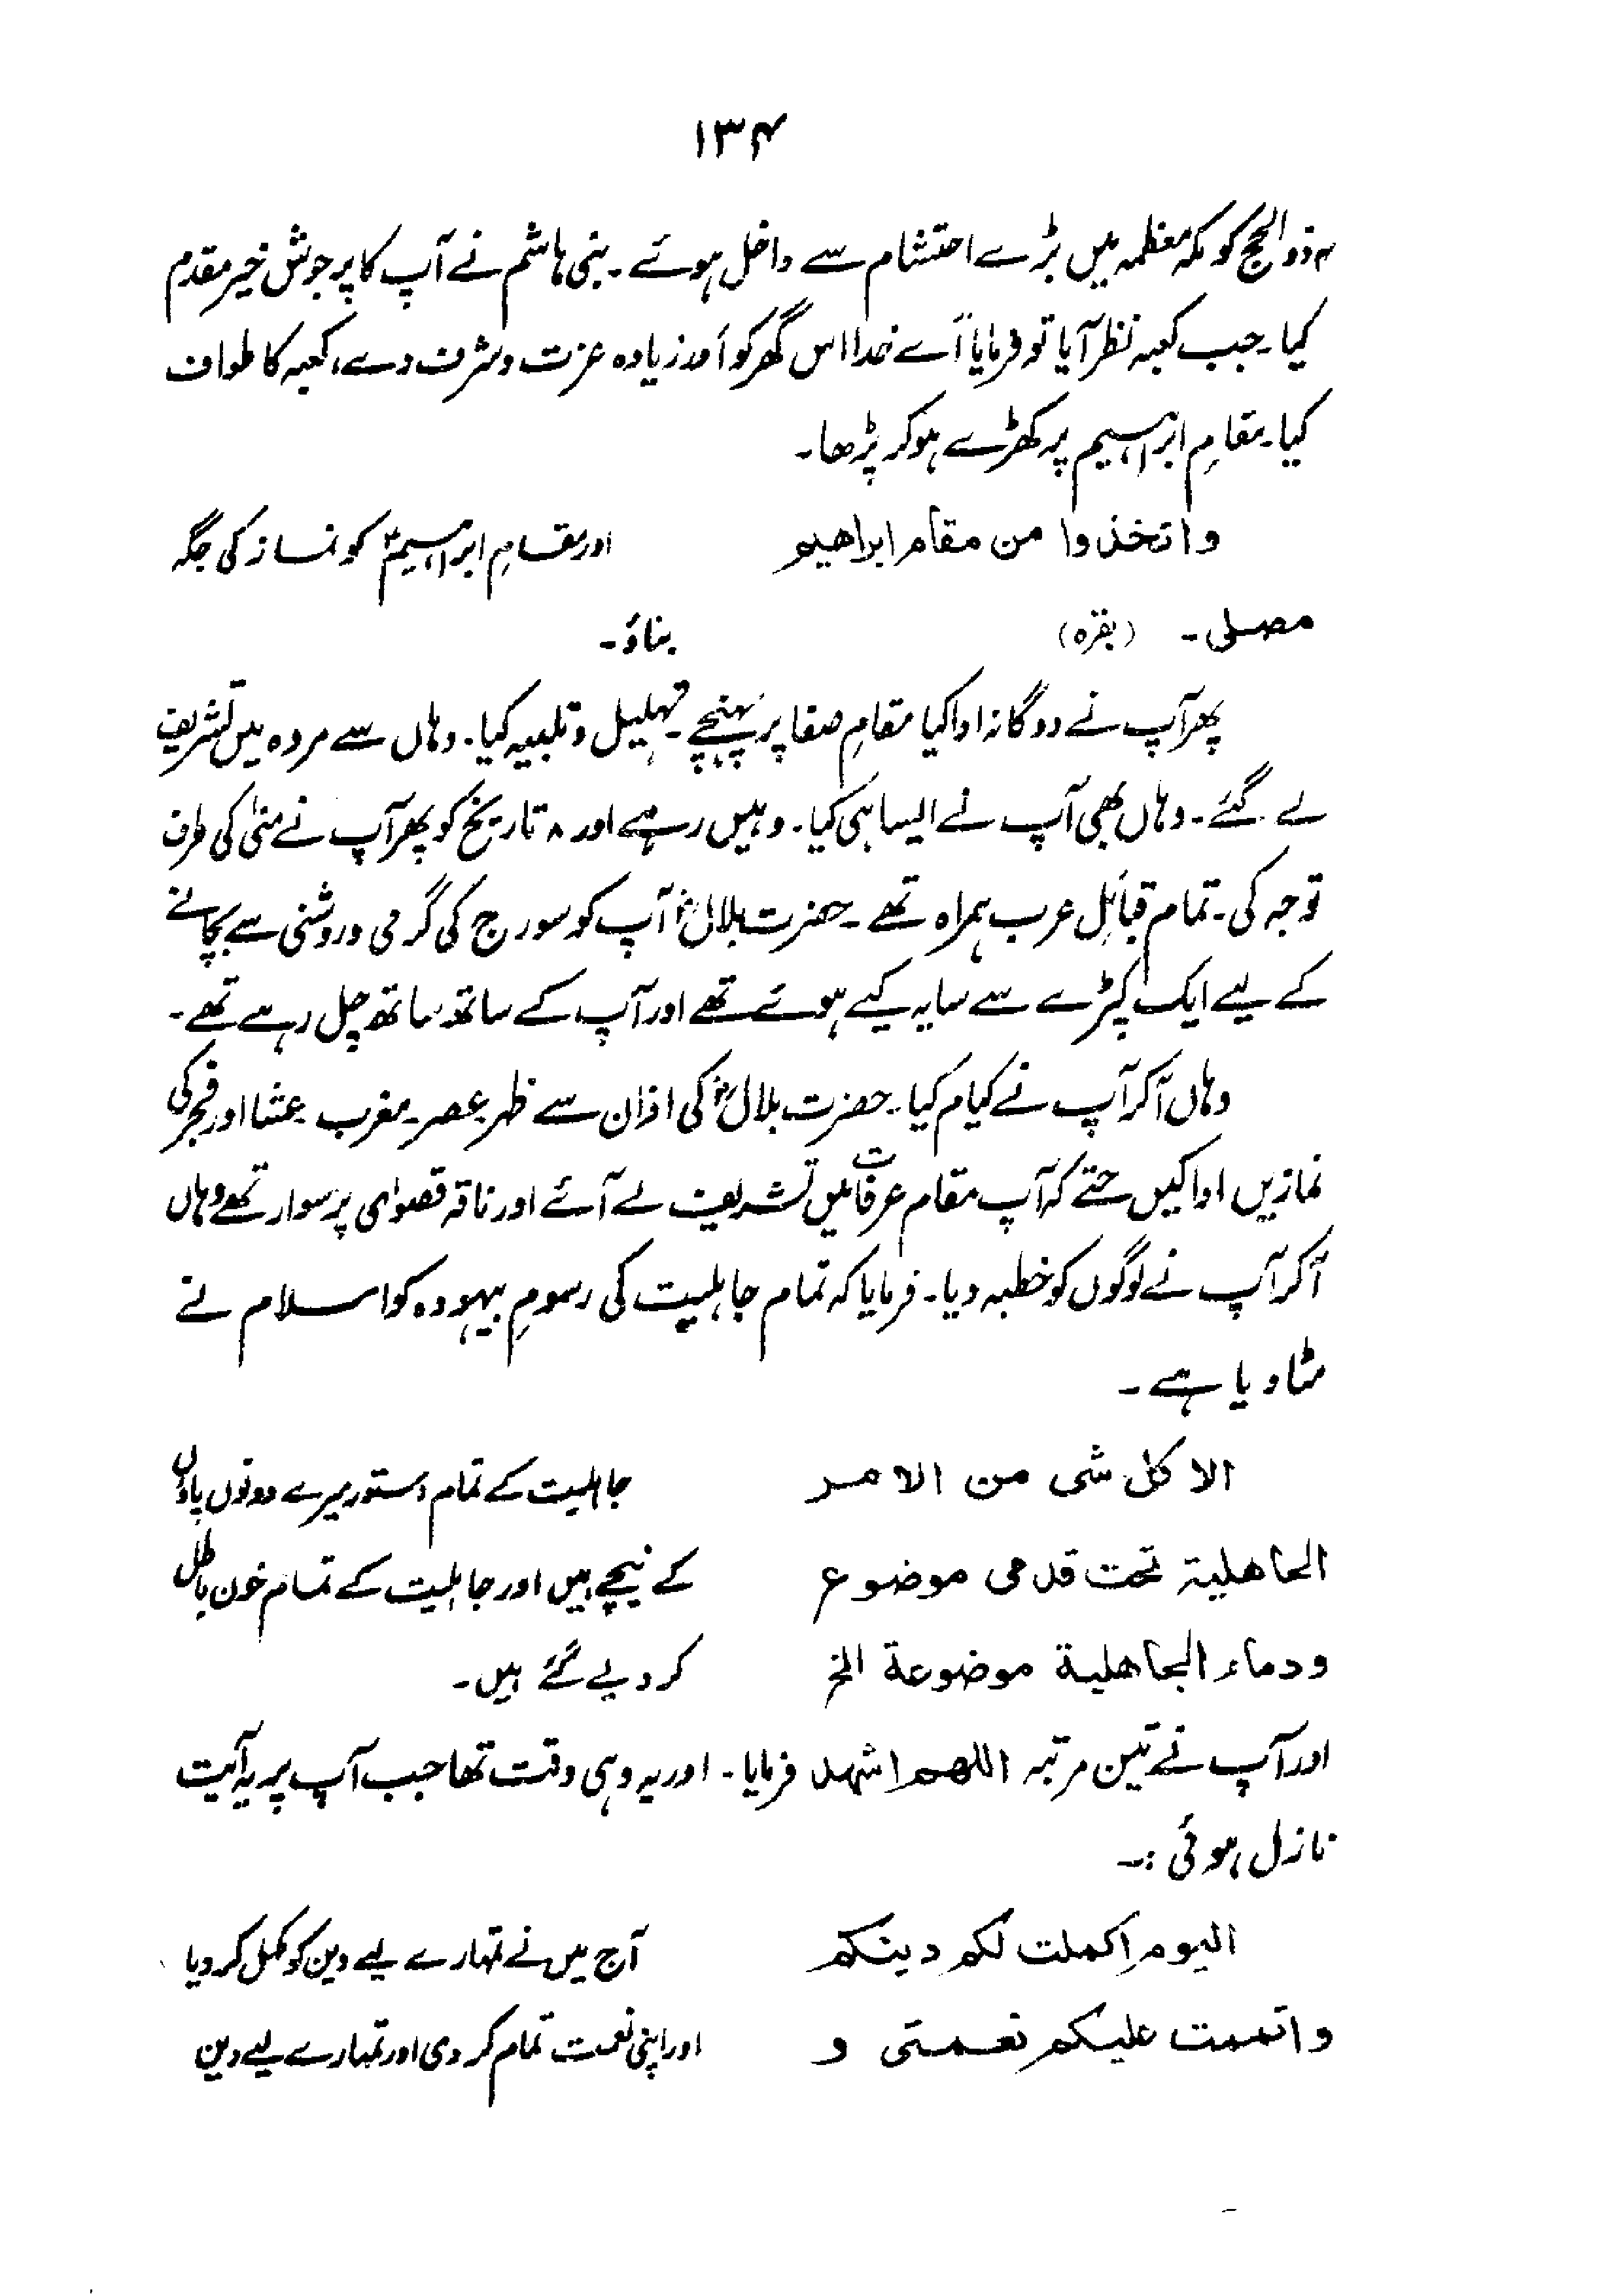 ۱۳۴
۴ ذوالحج کو مکہ معظمہ میں بڑے احتشام سے داخل ہوئے۔ بنی ہاشم نے آپ کا پرجوش خیر مقدم
کیا۔ جب کعبہ نظر آیا تو فرمایا اے خدا اس گھر کو اور زیادہ عزت و شرف دے، کعبہ کا طواف
کیا۔ مقامِ ابراہیم پر کھڑے ہو کر پڑھا۔
واتخذوا من مقام ابراهیم اور مقامِ ابراہیمؑ کو نماز کی جگہ
مصلی۔ (بقرہ) بناؤ۔
پھر آپ نے دوگانہ ادا کیا مقامِ صفا پر پہنچے۔ تہلیل و تلبیہ کیا۔ وہاں سے مروہ میں تشریف
لے گئے۔ وہاں بھی آپ نے ایسا ہی کیا۔ وہیں رہے اور ۸ تاریخ کو پھر آپ نے منیٰ کی طرف
توجہ کی۔ تمام قبائلِ عرب ہمراہ تھے۔ حضرت بلالؓ آپ کو سورج کی گرمی و روشنی سے بچانے
کے لیے ایک کپڑے سے سایہ کیے ہوئے تھے اور آپ کے ساتھ ساتھ چل رہے تھے۔
وہاں آکر آپ نے کیام کیا۔ حضرت بلالؓ کی اذان سے ظہر۔ عصر۔ مغرب۔ عشا اور فجر کی
نمازیں ادا کیں حتے کہ آپ مقام عرفات میں تشریف لے آئے اور ناقہ قصوٰی پر سوار تھے وہاں
آکر آپ نے لوگوں کو خطبہ دیا۔ فرمایا کہ تمام جاہلیت کی رسومِ بیہودہ کو اسلام نے
مٹا دیا ہے۔
الا کل شی من الامر جاہلیت کے تمام دستور میرے دونوں پاؤں
الجاهلیة تحت قدمی موضوع کے نیچے ہیں اور جاہلیت کے تمام خون باطل
ودماء الجاهلیة موضوعة الخ کر دیے گئے ہیں۔
اور آپ نے تین مرتبہ اللهم اشهد فرمایا۔ اور یہ وہی وقت تھا جب آپ پر یہ آیت
نازل ہوئی :۔
الیوم اکملت لکم دینکم آج میں نے تمہارے لیے دین کو مکمل کر دیا
واتممت علیکم نعمتی و اور اپنی نعمت تمام کر دی اور تمہارے لیے دین